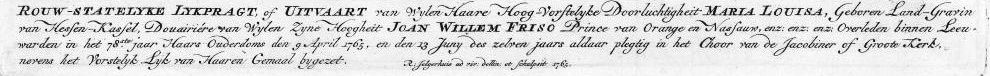 ROUW-STATELYKE LYKPRAGT, of UITVAART van Wylen Haare Hoog-Vorstelyke Doorluchtigheit MARIA LOUISA, Geboren Land-Gravin
van Hessen-Kassel, Douairiére van Wylen Zyne Hoogheit JOAN WILLEM FRISO Prince van Orange en Nassauw, enz: enz: enz: Overleden binnen Leeu-
warden in het 78ste jaar Haars Ouderdoms den 9 April 1765, en den 13 Juny des zelven jaars alduar plegtig in het Choor van de Jacobiner of Groote Kerk,
nevens het Vorstelyk Lyk van Haaren Gemaal bygezet.
R: Jelgerhuis ad viv. delin. et sculpsit 1765.